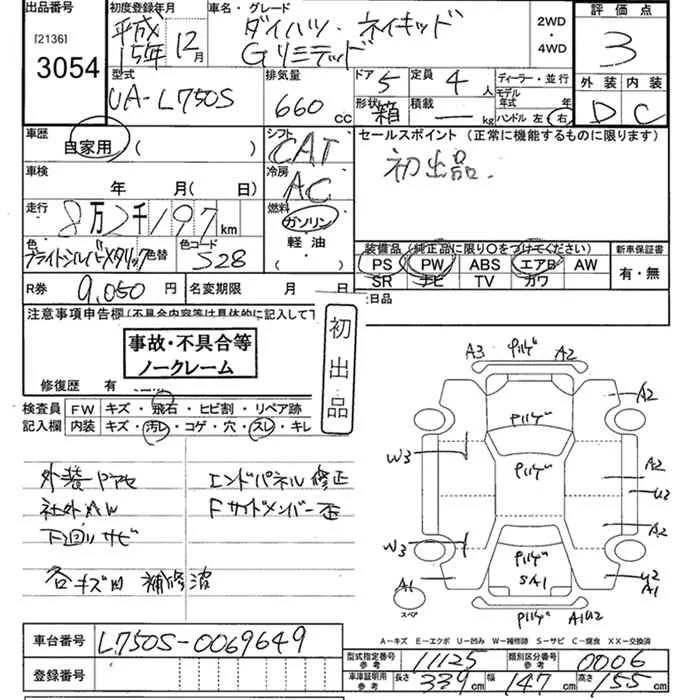 出品番号
[2136]
3054
初度登録年月
平成
15年 12月
車名・グレード
ダイハツ・ネイキッド
Gリミテッド
2WD
・
4WD
評価点
3
外装 内装
D C
型式
UA-L750S
排気量
660 cc
ドア 5
定員 4 人
形状 箱
積載 — kg
ディーラー・並行
モデル
年式 年
ハンドル 左・右
車歴
自家用 ( )
シフト
CAT
セールスポイント (正常に機能するものに限ります)
初出品.
車検
年 月( 日)
冷房
AC
走行
8万2千197 km
燃料
ガソリン
軽油
( )
色
ブライトシルバーメタリック
色替
色コード
S28
装備品 (純正品に限り○をつけてください)
PS PW ABS エアB AW
SR ナビ TV カワ
新車保証書
有・無
R券 9,050 円
名変期限 月 日
注意事項申告欄(不具合内容等は具体的に記入して下
事故・不具合等
ノークレーム
初出品
修復歴 有
検査員
記入欄
FW キズ・飛石・ヒビ割・リペア跡
内装 キズ・汚レ・コゲ・穴・スレ・キレ
外装ヤヤセ
社外AW
下回リサビ
各キズ凹 補修渡
エンドパネル修正
Fサイドメンバー歪
A3 クリハゲ A2
クリハゲ A2
W3 クリハゲ A2
U2
A2
W3 クリハゲ
SA1 U2
A1 A1
スペア
クリハゲ A1U2
A-キズ E-エクボ U-凹み W-補修跡 S-サビ C-腐食 XX-交換済
車台番号 L750S-0069649
登録番号
型式指定番号
参考
11125
類別区分番号
参考
0006
車庫証明用
参考
長さ 339 cm
幅 147 cm
高さ 155 cm